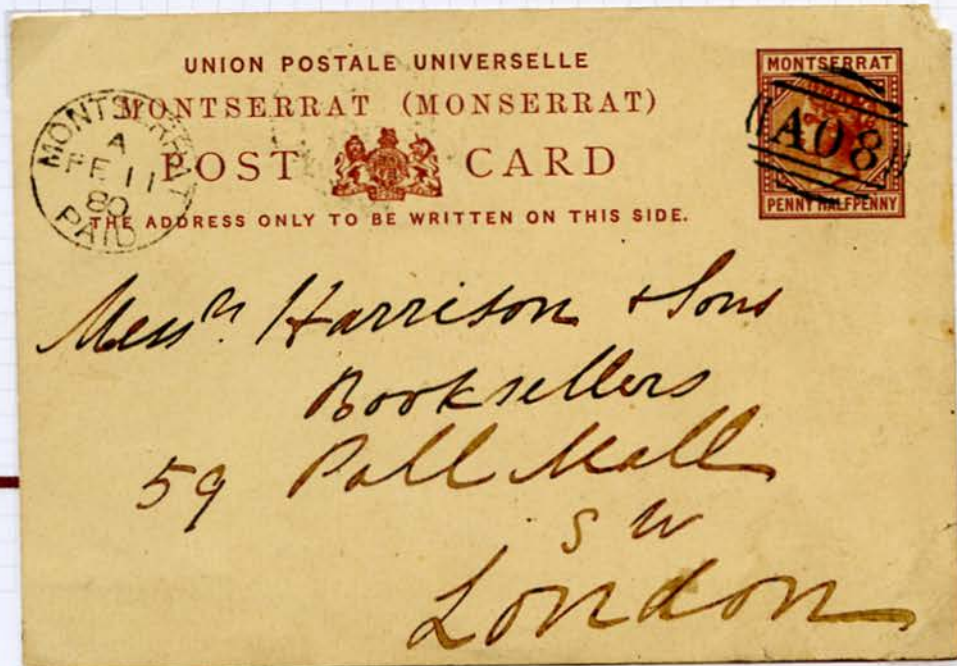 UNION POSTALE UNIVERSELLE
MONTSERRAT (MONSERRAT)
POST CARD
THE ADDRESS ONLY TO BE WRITTEN ON THIS SIDE.
MONTSERRAT
A
FE 11
80
PAID
MONTSERRAT
A08
PENNY HALFPENNY
Messrs. Harrison & Sons
Booksellers
59 Pall Mall
S W
London